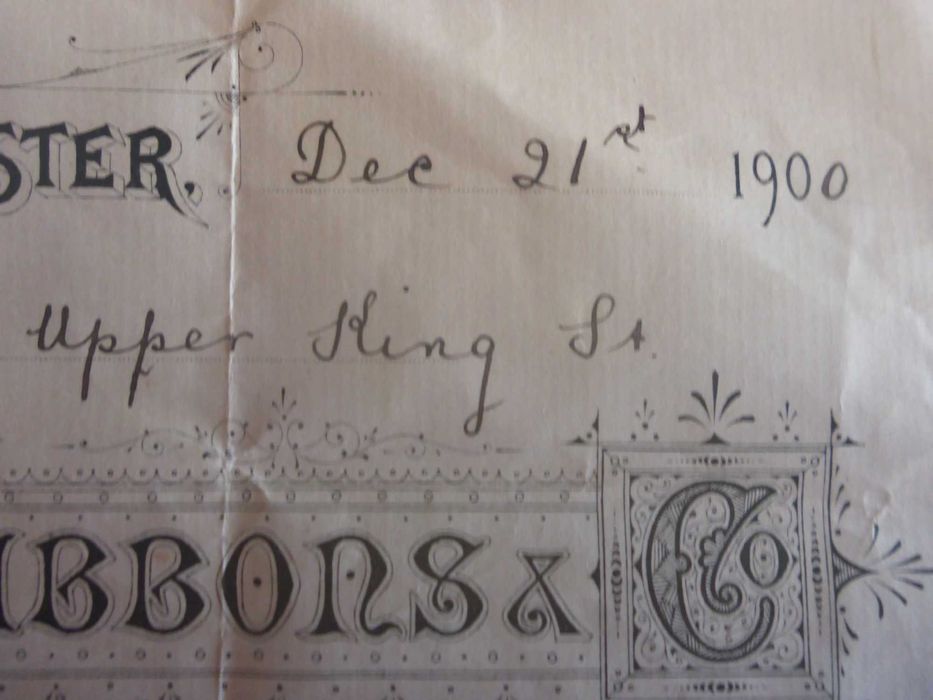 STER. Dec 21st 1900
Upper King St.
IBBONS & Co